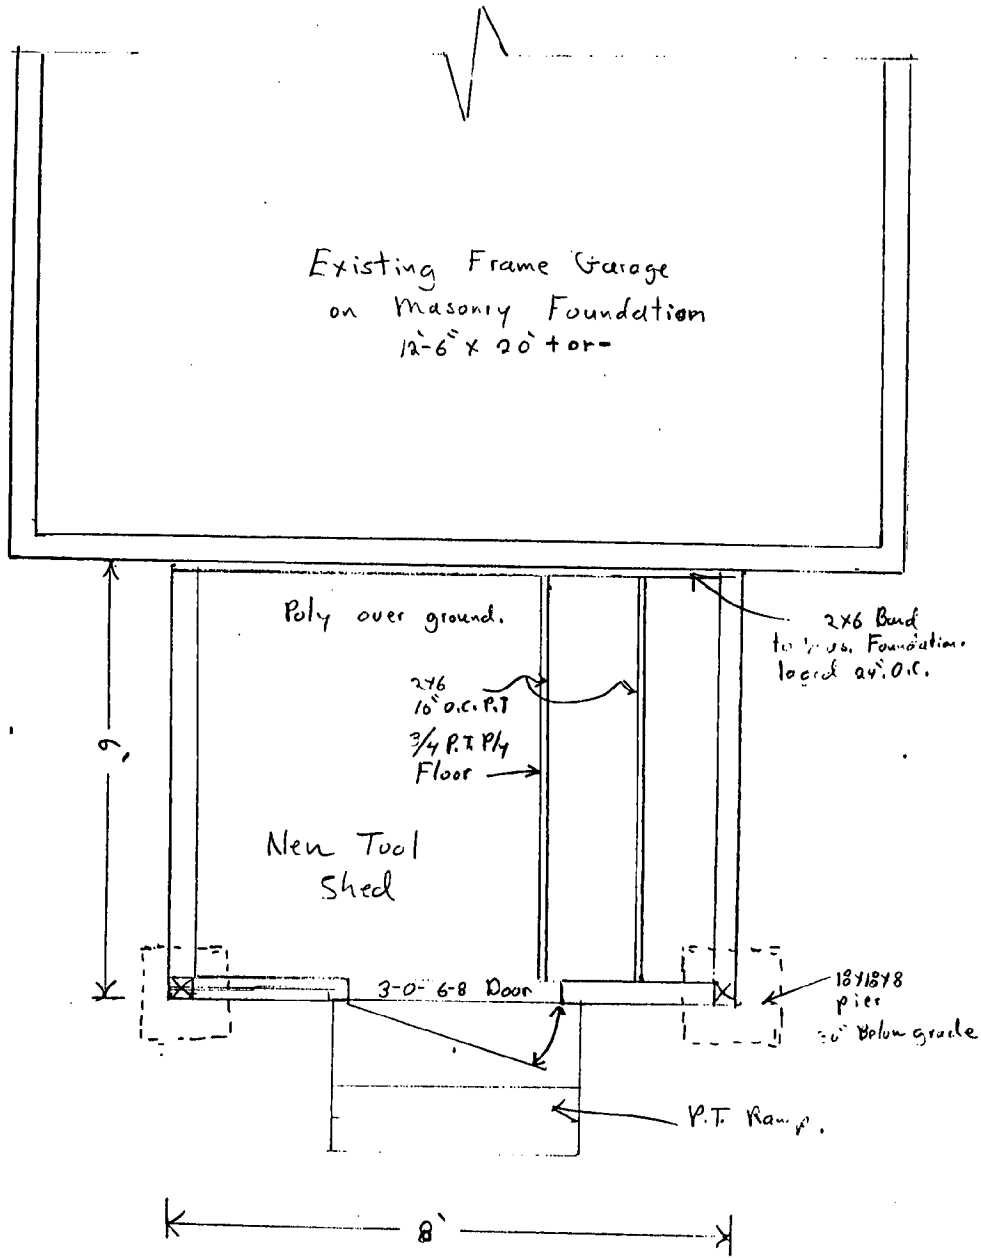 Existing Frame Garage
on Masonry Foundation
12'-6" x 20' + or -
Poly over ground.
2x6 Band
Foundation.
24" O.C.
2x6
16" O.C. P.T
3/4 P.T. Ply
Floor
6'
New Tool
Shed
3-0 6-8 Door
18x18x8
pier
Below grade
P.T. Ramp.
8'